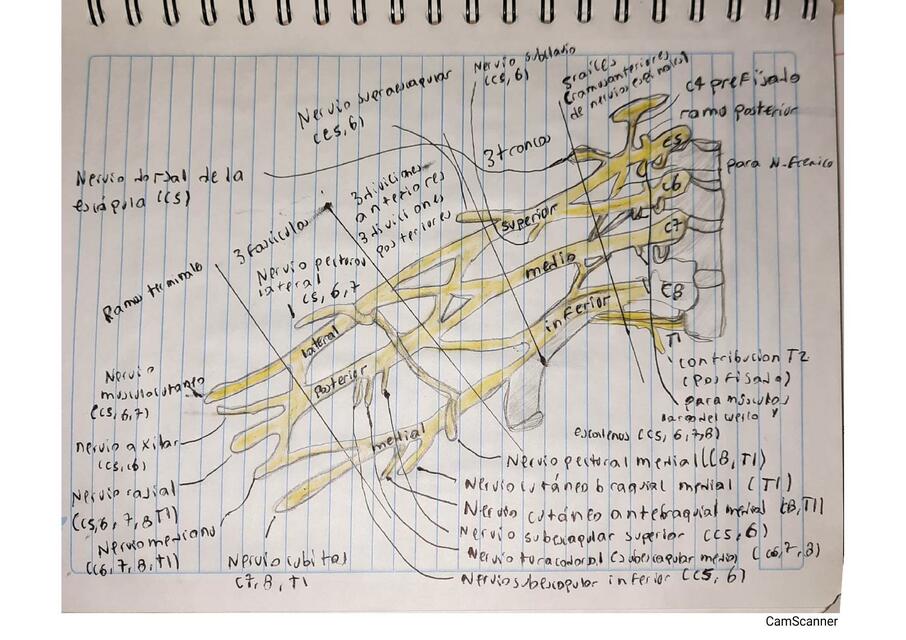 Nervio subclavio
(C5, 6)
5 raíces
(ramos anteriores
de nervios espinales)
C4 prefisado
ramo posterior
para N. frenico
Nervio supraescapular
(C5, 6)
3 troncos
Nervio dorsal de la
escápula (C5)
3 diviciones
anteriores
3 diviciones
posteriores
3 fasiculos
Nervio pectoral
lateral
C5, 6, 7
Ramos terminals
C5
C6
C7
C8
T1
superior
medio
inferior
lateral
posterior
medial
Nervio
musculocutaneo
(C5, 6, 7)
nervio axilar
(C5, C6)
Nervio radial
(C5, 6, 7, 8 T1)
Nervio mediano
(C6, 7, 8, T1)
Nervio cubital
C7, 8, T1
contribucion T2
(posfisada)
para músculos
largo del cuello y
escalenos (C5, 6, 7, 8)
Nervio pectoral medial (C8, T1)
Nervio cutáneo braquial medial (T1)
Nervio cutáneo antebraquial medial (C8, T1)
Nervio subescapular superior (C5, 6)
Nervio toracodorsal (subescapular medio) (C6, 7, 8)
Nervio subescapular inferior (C5, 6)
CamScanner